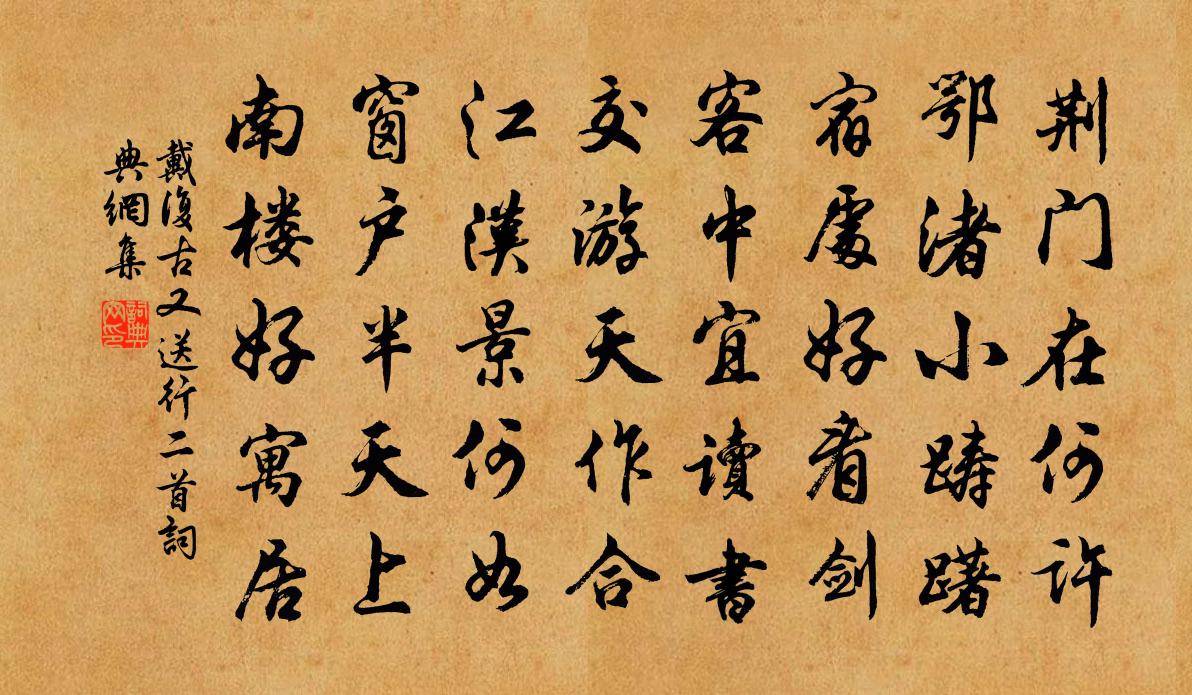 荆门在何许
鄂渚小踌躇
宿處好看剑
客中宜讀書
交游天作合
江漢景何如
窗户半天上
南楼好寓居
戴復古又送行二首詞
典網集
詞典
网印